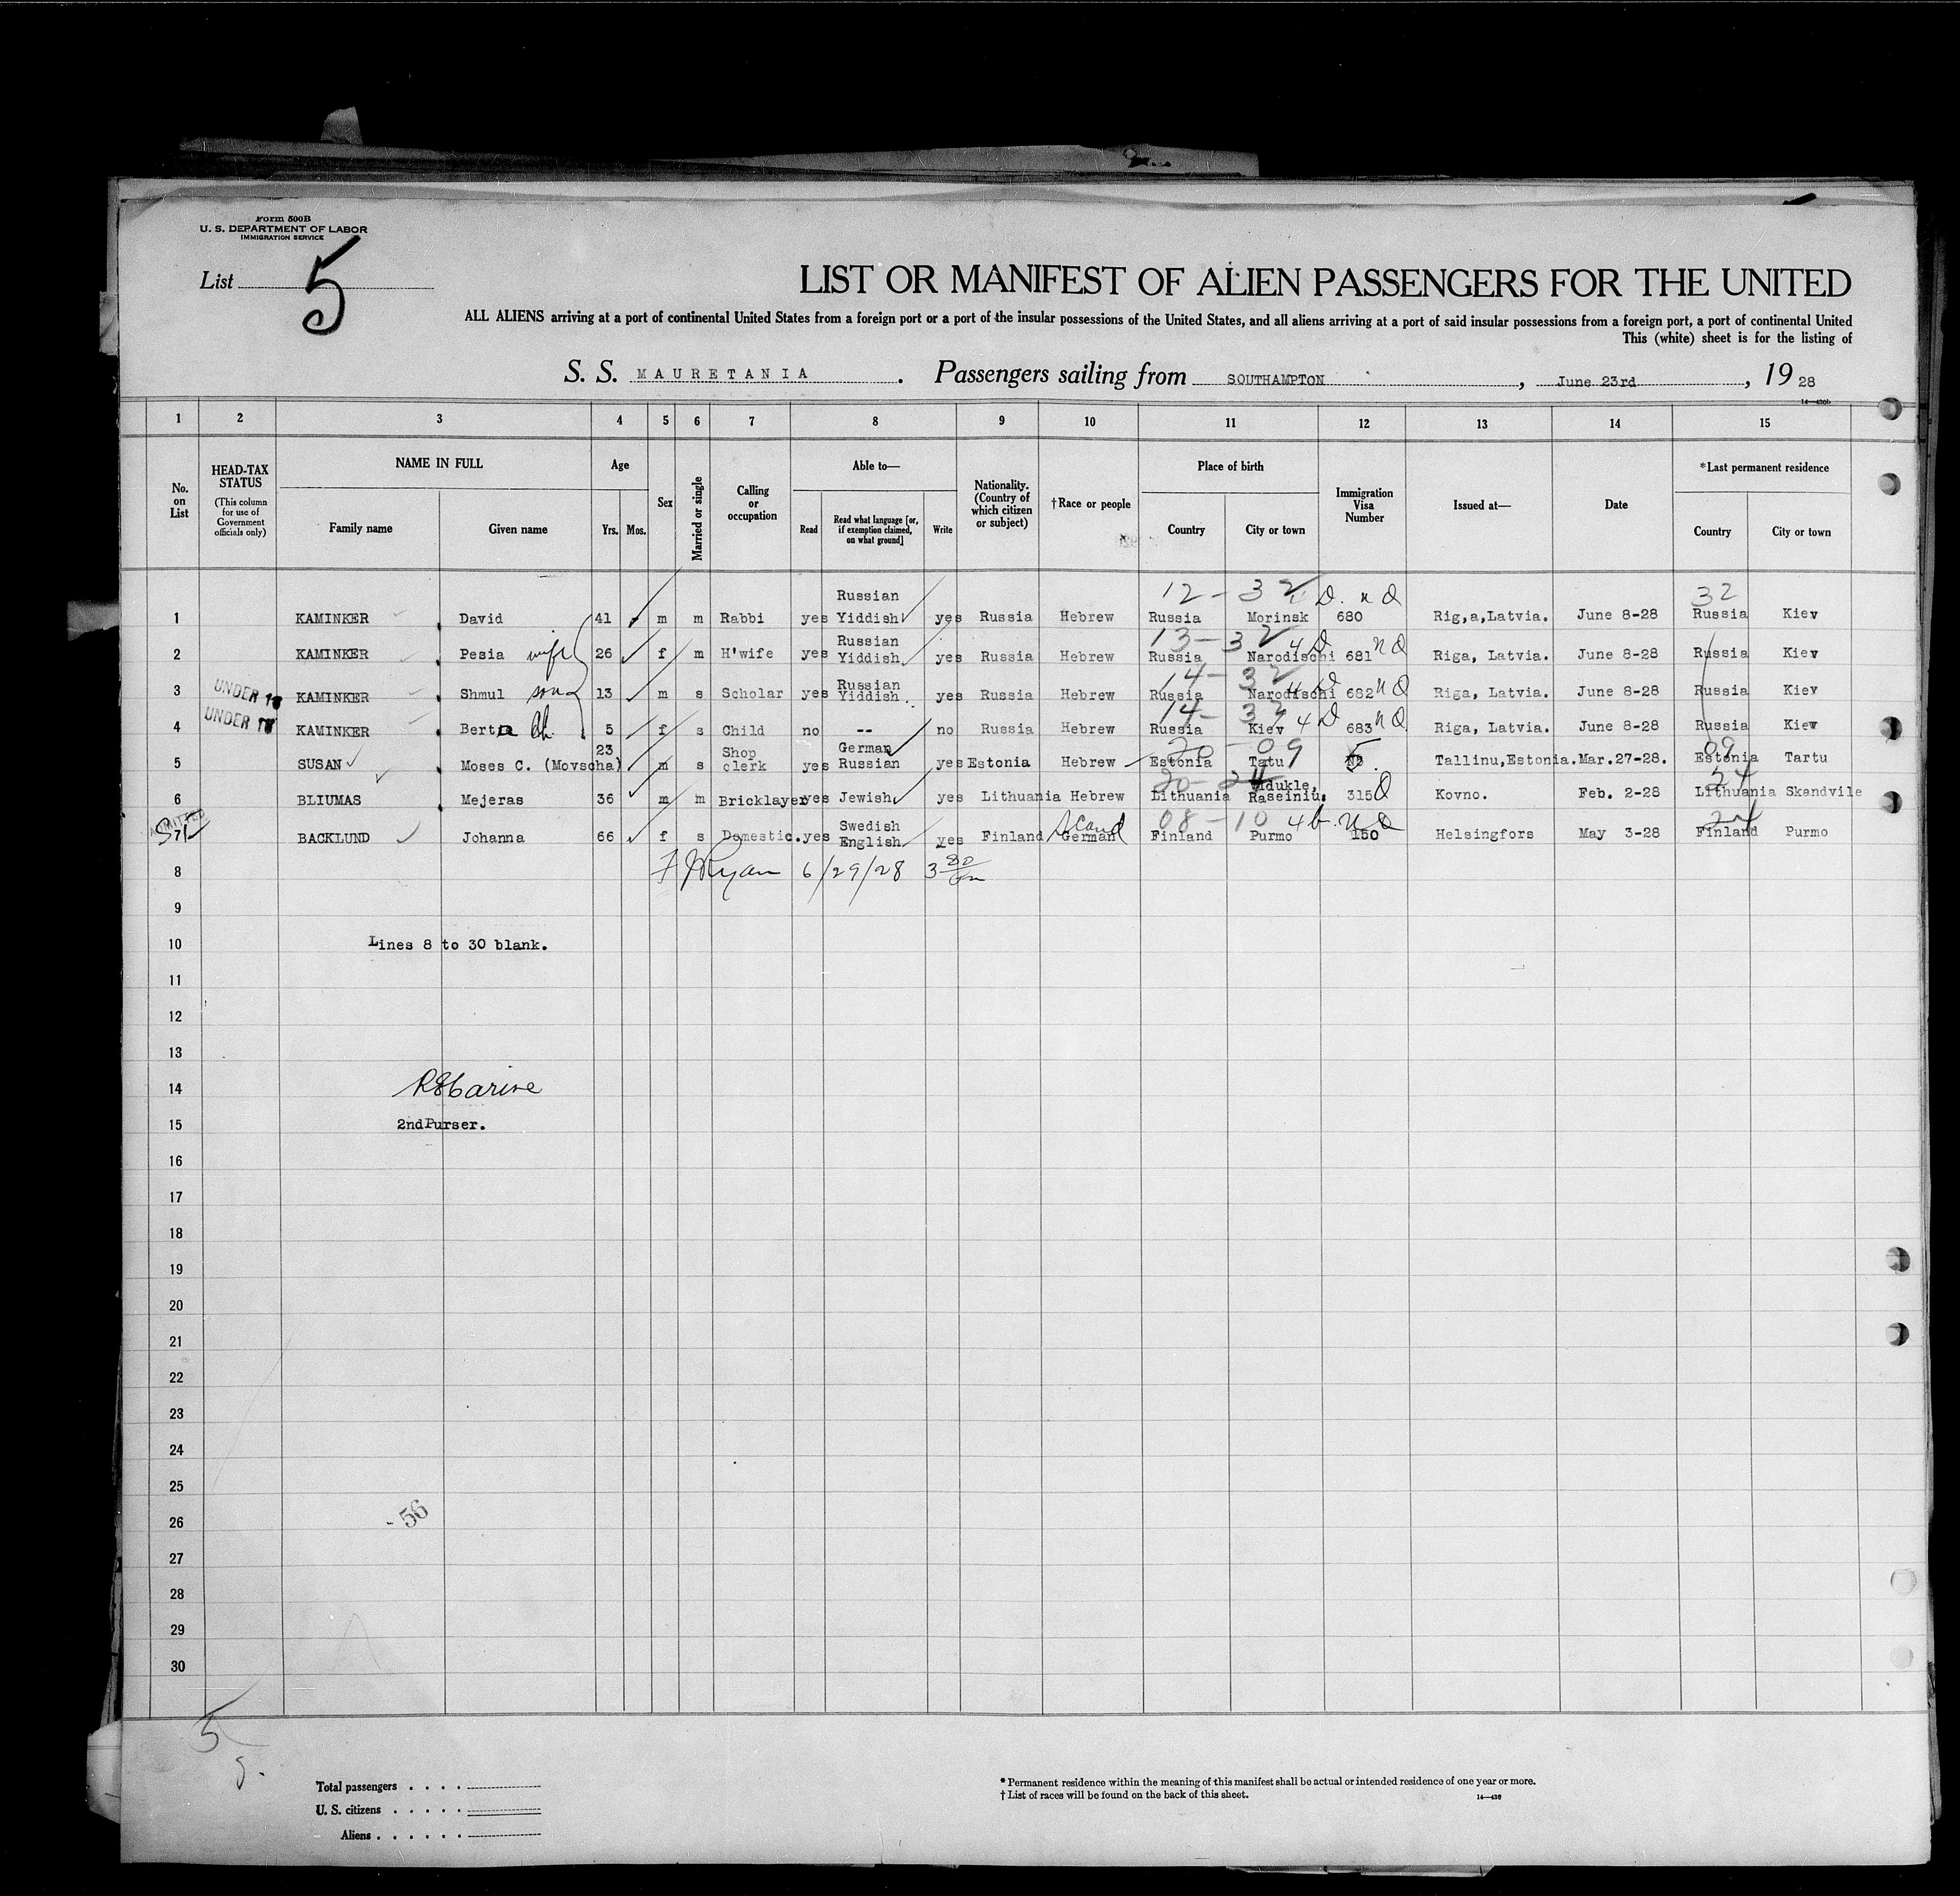 Form 500B
U. S. DEPARTMENT OF LABOR
IMMIGRATION SERVICE
List 5
LIST OR MANIFEST OF ALIEN PASSENGERS FOR THE UNITED
ALL ALIENS arriving at a port of continental United States from a foreign port or a port of the insular possessions of the United States, and all aliens arriving at a port of said insular possessions from a foreign port, a port of continental United
This (white) sheet is for the listing of
S. S. MAURETANIA. Passengers sailing from SOUTHAMPTON, June 23rd, 19 28
14—430b
1 2 3 4 5 6 7 8 9 10 11 12 13 14 15
No. on List
HEAD-TAX STATUS (This column for use of Government officials only)
NAME IN FULL Family name Given name
Age Yrs. Mos.
Sex
Married or single
Calling or occupation
Able to— Read Read what language [or, if exemption claimed, on what ground] Write
Nationality. (Country of which citizen or subject)
†Race or people
Place of birth Country City or town
Immigration Visa Number
Issued at—
Date
*Last permanent residence Country City or town
12-32 D. n Q 32
1 KAMINKER David 41 m m Rabbi yes Russian Yiddish yes Russia Hebrew Russia Morinsk 680 Rig,a,Latvia. June 8-28 Russia Kiev
13-32 4 D n Q
2 KAMINKER Pesia wife 26 f m H'wife yes Russian Yiddish yes Russia Hebrew Russia Narodischi 681 Riga, Latvia. June 8-28 Russia Kiev
14-32 4 D n Q
3 UNDER 18 KAMINKER Shmul son 13 m s Scholar yes Russian Yiddish. yes Russia Hebrew Russia Narodischi 682 Riga, Latvia. June 8-28 Russia Kiev
14-32 4 D n Q
4 UNDER KAMINKER Berta Ch. 5 f s Child no -- no Russia Hebrew Russia Kiev 683 Riga, Latvia. June 8-28 Russia Kiev
20-09 09
5 SUSAN Moses C. (Movscha) 23 m s Shop clerk yes German Russian yes Estonia Hebrew Estonia Tatu Tallinu,Estonia. Mar.27-28. Estonia Tartu
20-24 24
6 BLIUMAS Mejeras 36 m m Bricklayer yes Jewish yes Lithuania Hebrew Lithuania Vidukle, Raseiniu. 315 Q Kovno. Feb. 2-28 Lithuania Skandvile
08-10 4 b. n Q
ADMITTED
7 BACKLUND Johanna 66 f s Domestic. yes Swedish English yes Finland Scand German Finland Purmo 150 Helsingfors May 3-28 Finland Purmo
8 F J Ryan 6/29/28 3
9
10 Lines 8 to 30 blank.
11
12
13
14
15 2ndPurser.
16
17
18
19
20
21
22
23
24
25
26 56
27
28
29
30
5
Total passengers . . . .
U. S. citizens . . . . .
Aliens . . . . . .
* Permanent residence within the meaning of this manifest shall be actual or intended residence of one year or more.
† List of races will be found on the back of this sheet.
14—430